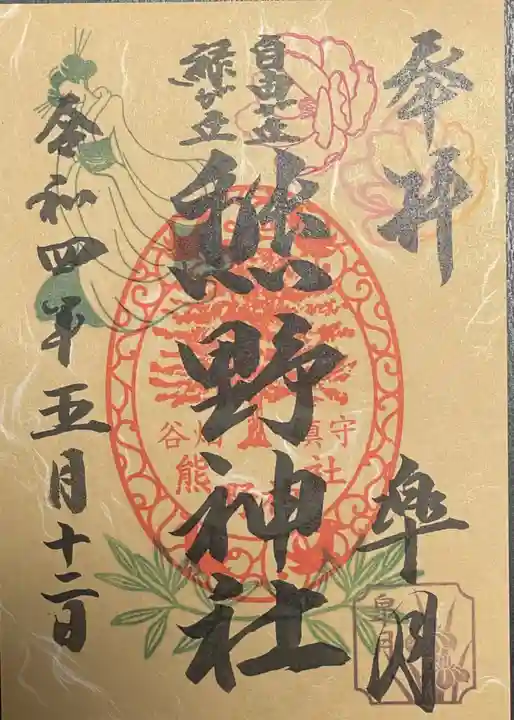 奉拝
皐月
皐月
自由が丘
緑が丘
熊野神社
谷畑
鎮守
熊野神社
令和四年五月十二日